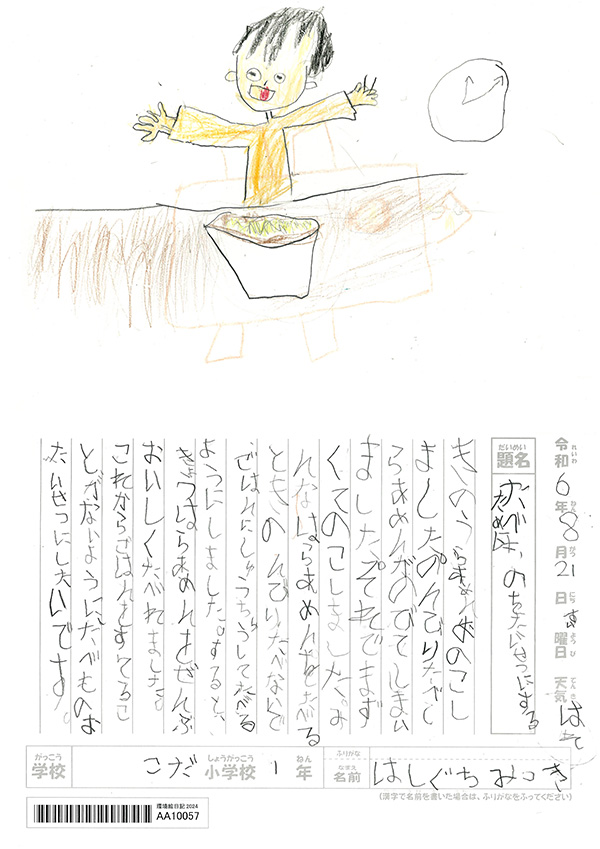 令和6年8月21日 曜日 天気 はれ
れいわ ねん がつ にち ようび てんき
だいめい
題名
たいせつにする
きのうらあめんをのこし
ました。のんびりたべて
らあめんがのびてしまい
ました。それでまず
くてのこしました。お
はらあめんをたべる
ときのんびりたべないで
ごはんにしゅうちゅうしてたべる
ようにしました。すると、
きょうはらあめんをぜんぶ
おいしくたべれました。
これからごはんをすてるこ
とがないようにたべものを
たいせつにしたいです。
がっこう
学校
こだ 小学校 1 年
しょうがっこう ねん
ふりがな
なまえ
名前 はしぐち みつき
(漢字で名前を書いた場合は、ふりがなをふってください)
環境絵日記2024
AA10057